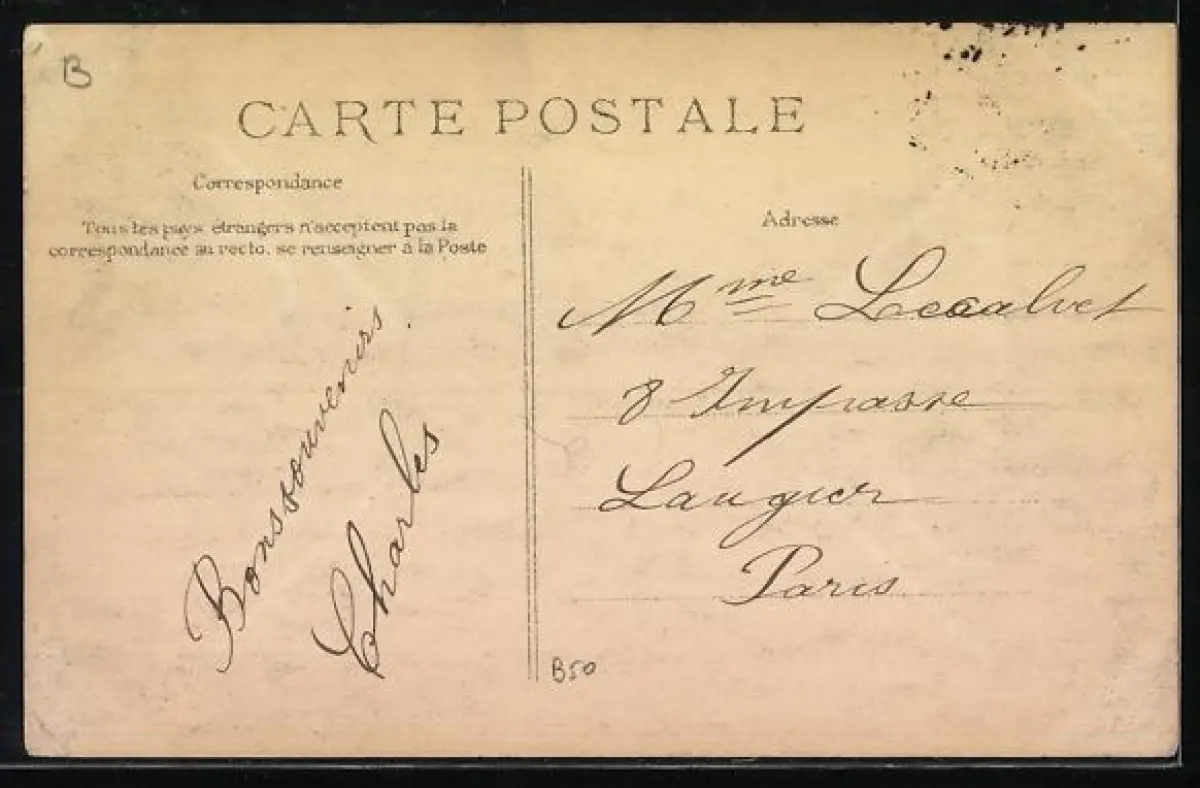 B
CARTE POSTALE
Correspondance
Tous les pays étrangers n'acceptent pas la
correspondance au recto, se renseigner à la Poste
Adresse
Bons souvenirs
Charles
Mme Lecalvet
8 Impasse
Laugier
Paris
B50